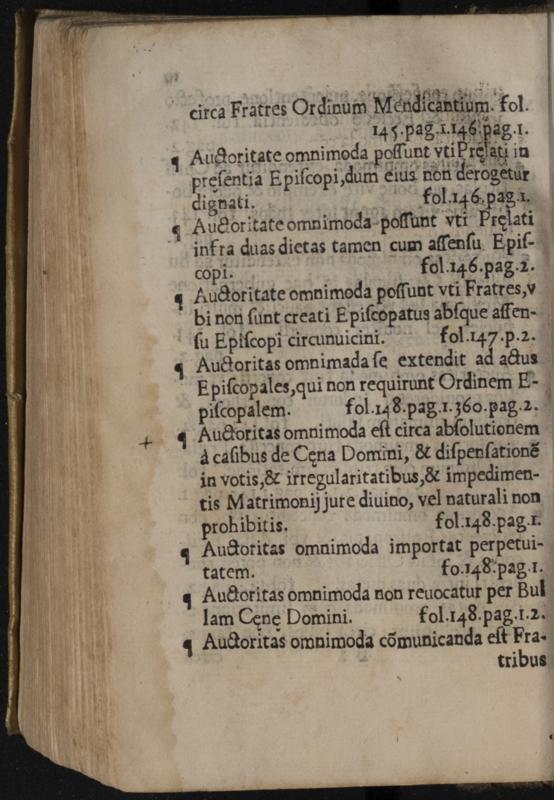 circa Fratres Ordinum Mendicantium. fol.
145.pag.1.146.pag.1.
¶ Auctoritate omnimoda possunt vti Pręlati in
pręsentia Episcopi, dum eius non derogetur
dignati. fol.146.pag.1.
¶ Auctoritate omnimoda possunt vti Pręlati
infra duas dietas tamen cum assensu Epis-
copi. fol.146.pag.2.
¶ Auctoritate omnimoda possunt vti Fratres, v
bi non sunt creati Episcopatus absque assen-
su Episcopi circunuicini. fol.147.p.2.
¶ Auctoritas omnimada se extendit ad actus
Episcopales, qui non requirunt Ordinem E-
piscopalem. fol.148.pag.1.360.pag.2.
+ ¶ Auctoritas omnimoda est circa absolutionem
à casibus de Cęna Domini, & dispensationẽ
in votis, & irregularitatibus, & impedimen-
tis Matrimonij jure diuino, vel naturali non
prohibitis. fol.148.pag.1.
¶ Auctoritas omnimoda importat perpetui-
tatem. fo.148.pag.1.
¶ Auctoritas omnimoda non reuocatur per Bul
lam Cęnę Domini. fol.148.pag.1.2.
¶ Auctoritas omnimoda cõmunicanda est Fra-
tribus